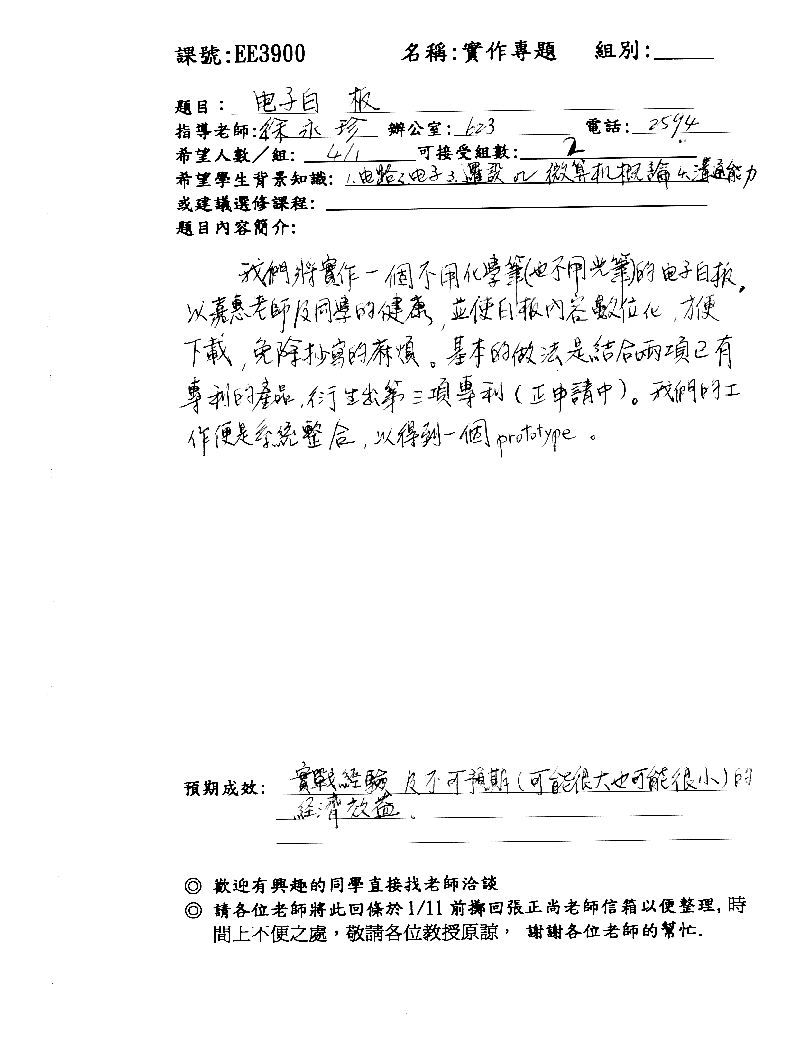 課號:EE3900 名稱:實作專題 組別:
題目: 电子白 板
指導老師:徐永珍 辦公室: 623 電話: 2594
希望人數/組: 4/1 可接受組數: 2
希望學生背景知識: 1.电路2.电子3.邏設 or 微算机概論 4.溝通能力
或建議選修課程:
題目內容簡介:
我們將實作一個不用化學筆(也不用光筆)的电子白板,
以嘉惠老師及同學的健康, 並使白板內容數位化, 方便
下載, 免除抄寫的麻煩。基本的做法是結合兩項已有
專利的產品, 衍生出第三項專利(正申請中)。我們的工
作便是系統整合, 以得到一個 prototype。
預期成效: 實戰經驗及不可預期(可能很大也可能很小)的
經濟效益.
◎ 歡迎有興趣的同學直接找老師洽談
◎ 請各位老師將此回條於1/11前擲回張正尚老師信箱以便整理,時
間上不便之處,敬請各位教授原諒, 謝謝各位老師的幫忙.